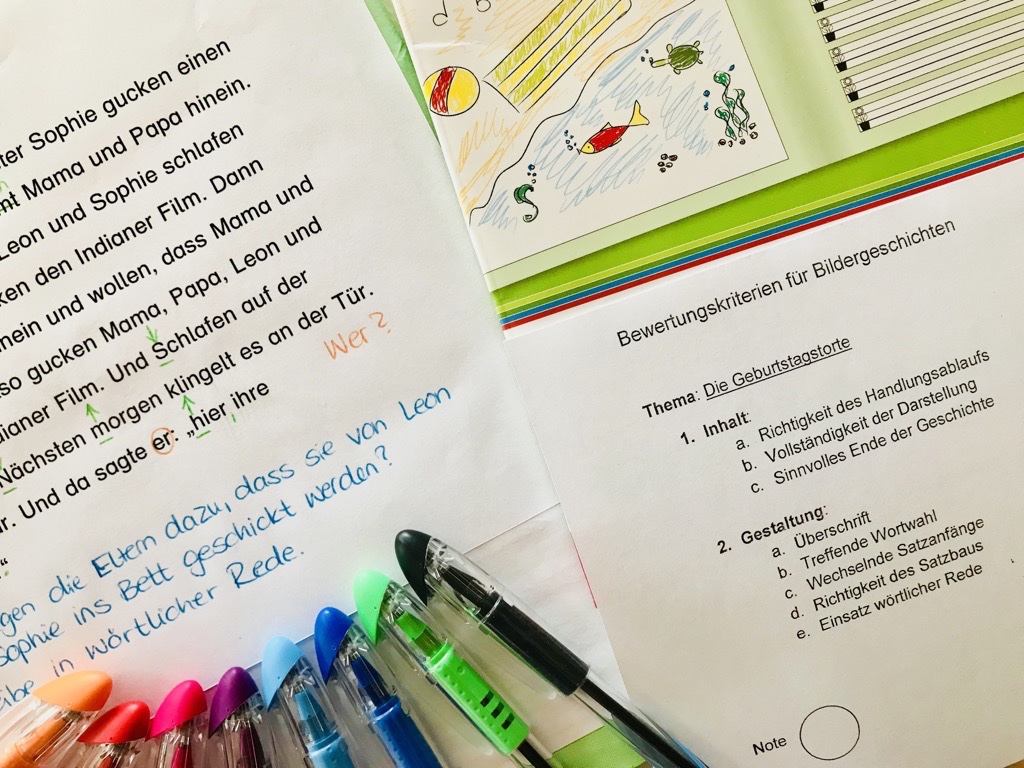 ter Sophie gucken einen
mt Mama und Papa hinein.
Leon und Sophie schlafen
ken den Indianer Film. Dann
hinein und wollen, dass Mama und
so gucken Mama, Papa, Leon und
dianer Film. Und Schlafen auf der
Nächsten morgen klingelt es an der Tür.
r. Und da sagte er: „hier ihre
“
Wer?
gen die Eltern dazu, dass sie von Leon
Sophie ins Bett geschickt werden?
in wörtlicher Rede.
Bewertungskriterien für Bildergeschichten
Thema: Die Geburtstagstorte
1. Inhalt:
a. Richtigkeit des Handlungsablaufs
b. Vollständigkeit der Darstellung
c. Sinnvolles Ende der Geschichte
2. Gestaltung:
a. Überschrift
b. Treffende Wortwahl
c. Wechselnde Satzanfänge
d. Richtigkeit des Satzbaus
e. Einsatz wörtlicher Rede
Note